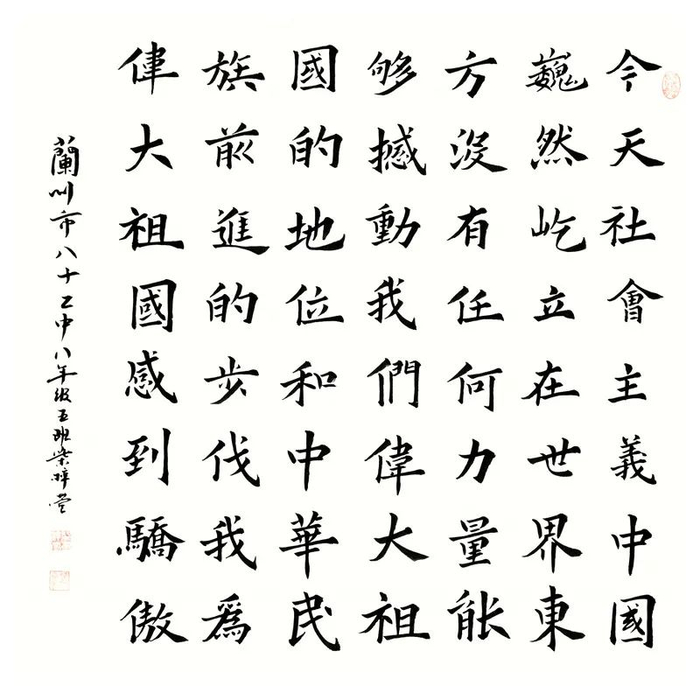 今天社會主義中國
巍然屹立在世界東
方沒有任何力量能
够撼動我們偉大祖
國的地位和中華民
族前進的步伐我為
偉大祖國感到驕傲
蘭州市八十五中八年級五班柴梓萱